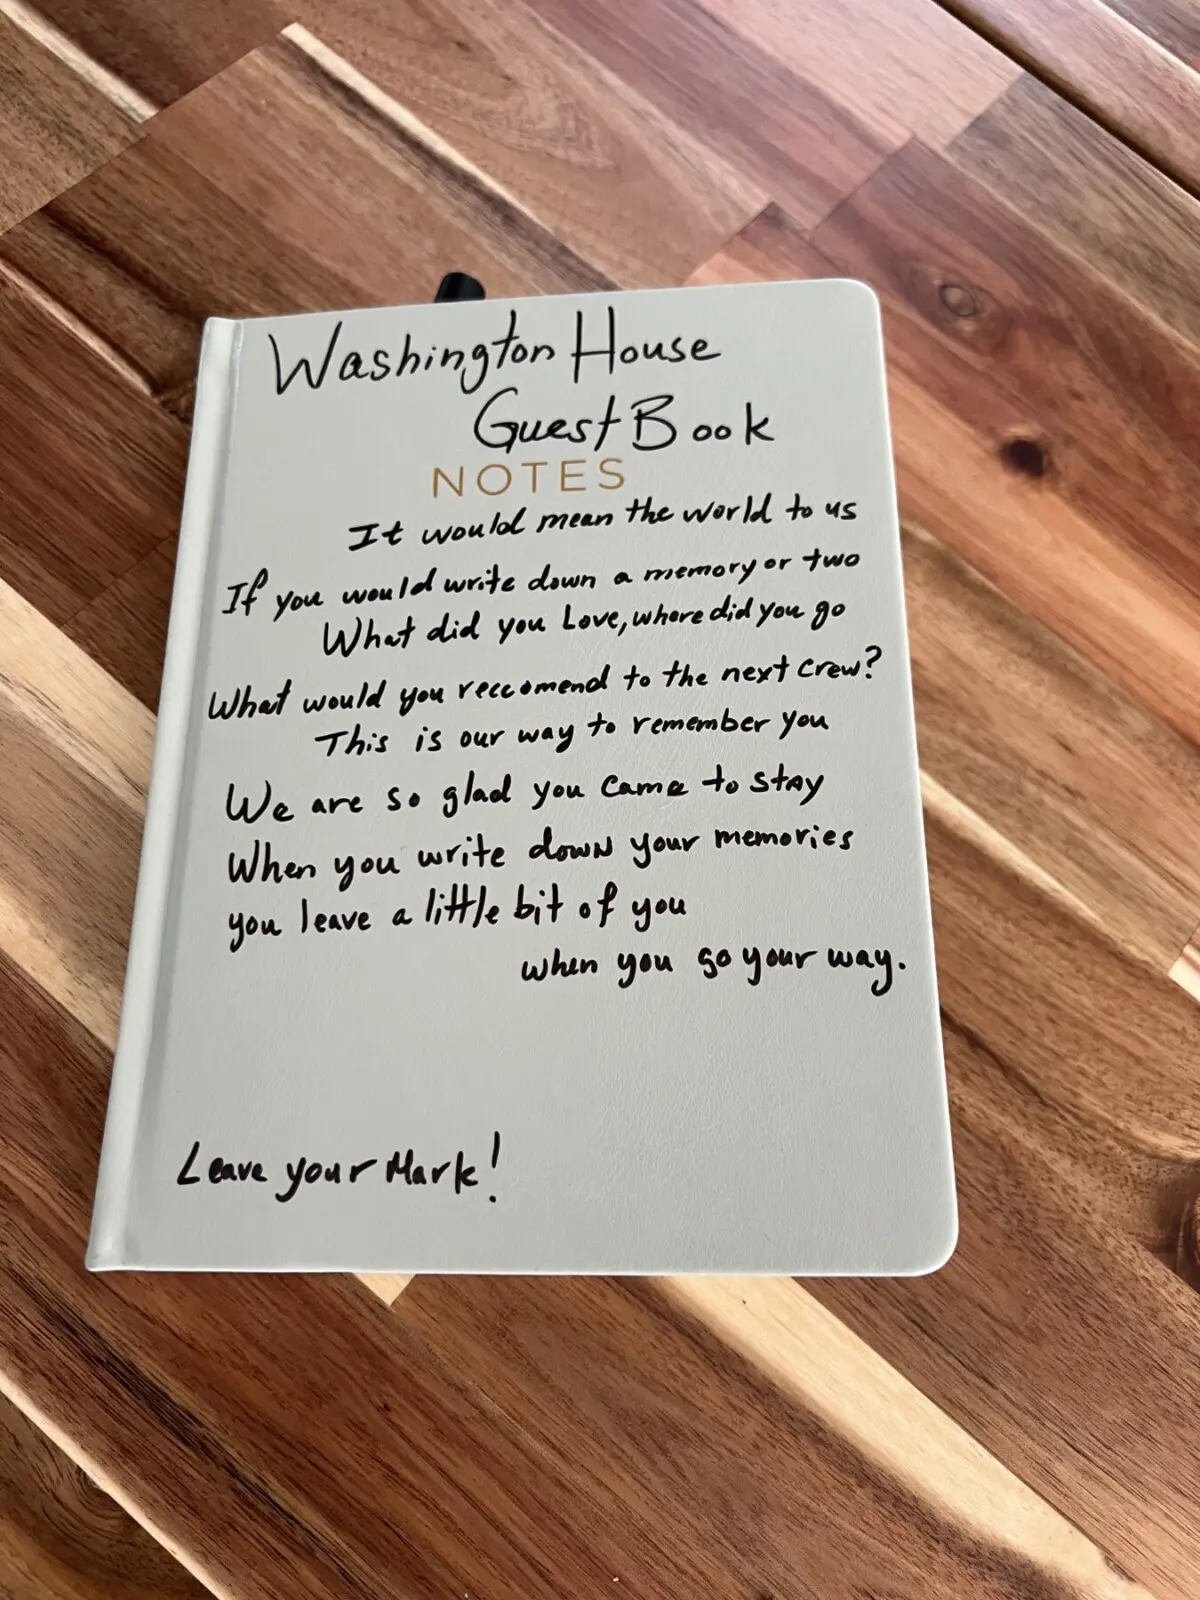 Washington House
Guest Book
NOTES
It would mean the world to us
If you would write down a memory or two
What did you Love, where did you go
What would you reccomend to the next crew?
This is our way to remember you
We are so glad you came to stay
When you write down your memories
you leave a little bit of you
when you go your way.
Leave your Mark!